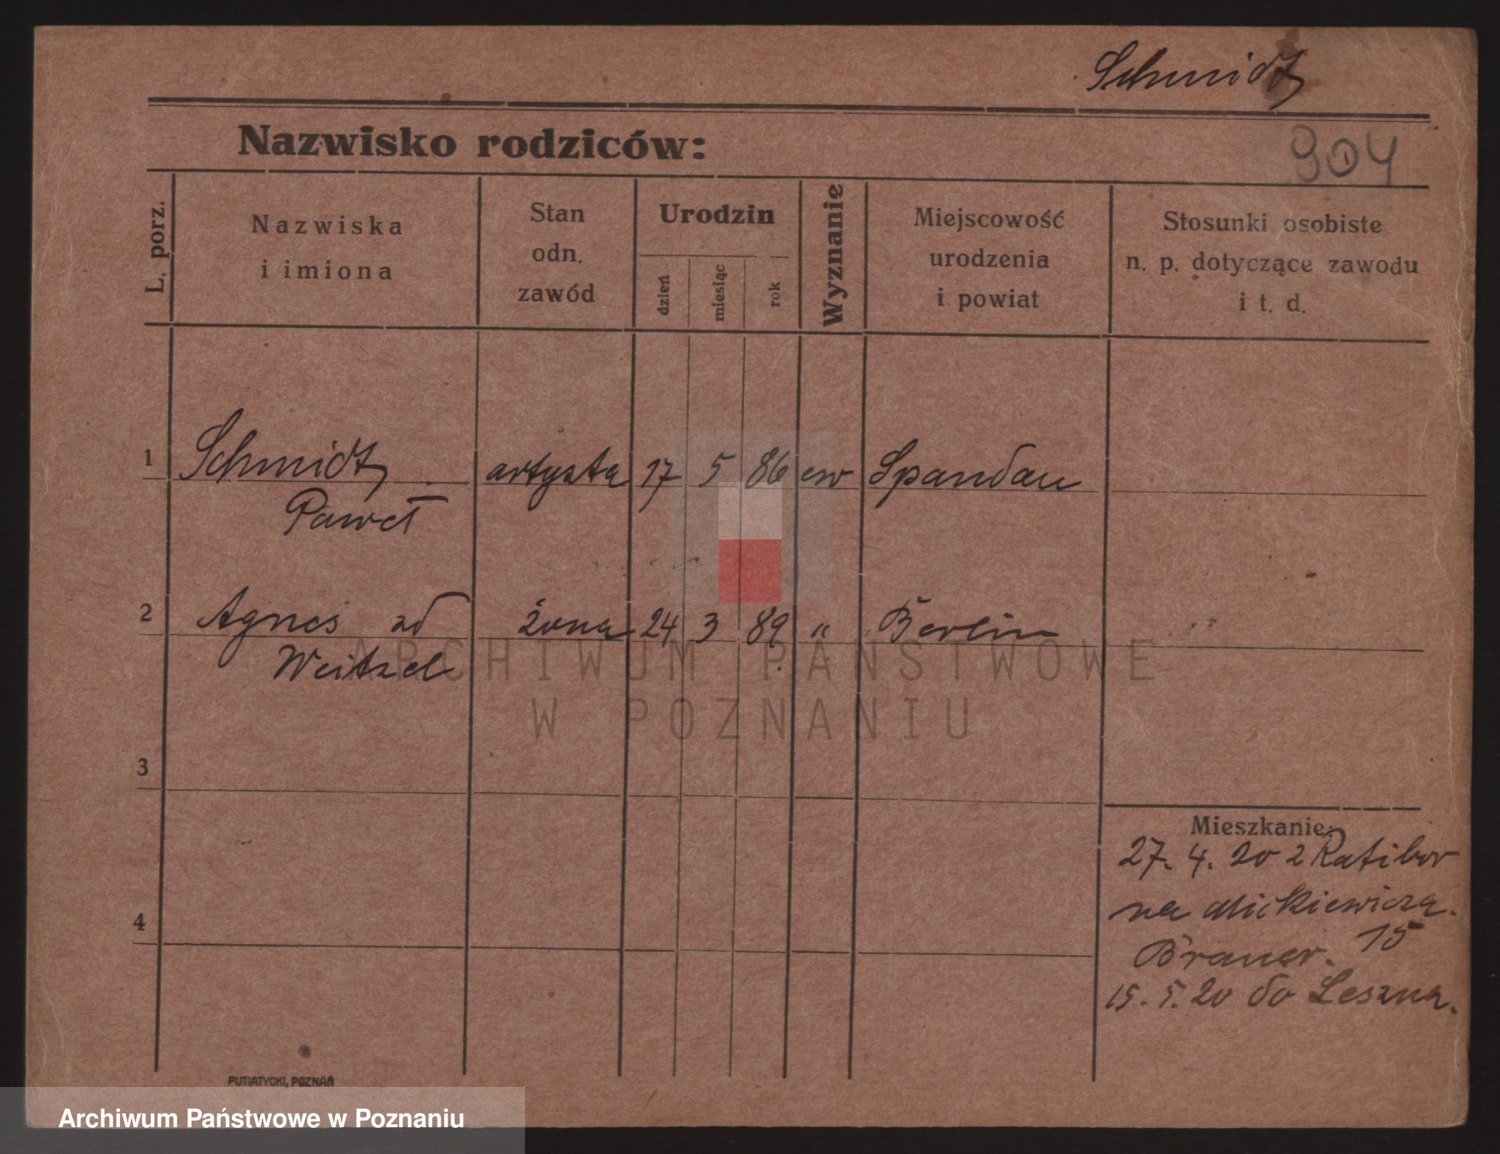 Schmidt
Nazwisko rodziców:
904
L. porz.
Nazwiska
i imiona
Stan
odn.
zawód
Urodzin
dzień
miesiąc
rok
Wyznanie
Miejscowość
urodzenia
i powiat
Stosunki osobiste
n. p. dotyczące zawodu
i t. d.
1 Schmidt artysta 17 5 86 ew Spandau
Paweł
2 Agnes zd żona 24 3 89 " Berlin
Weitzel
ARCHIWUM PAŃSTWOWE
W POZNANIU
3
Mieszkanie:
27. 4. 20 z Ratibor
na Mickiewicza.
15
Brauer.
15. 5. 20 do Leszna.
4
PUTIATYCKI, POZNAŃ
Archiwum Państwowe w Poznaniu